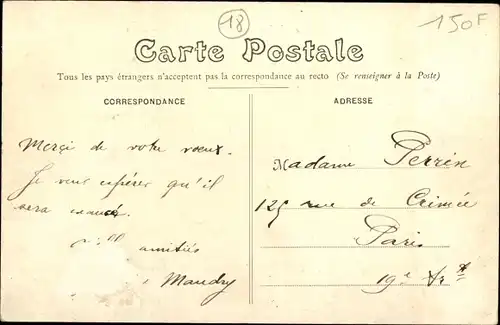 18
150F
Carte Postale
Tous les pays étrangers n'acceptent pas la correspondance au recto (Se renseigner à la Poste)
CORRESPONDANCE
Merçi de votre voeux.
Je veux espérer qu'il
sera exaucé.
amitiés
Maudry
ADRESSE
Madame Perrin
125 rue de Crimée
Paris
19e